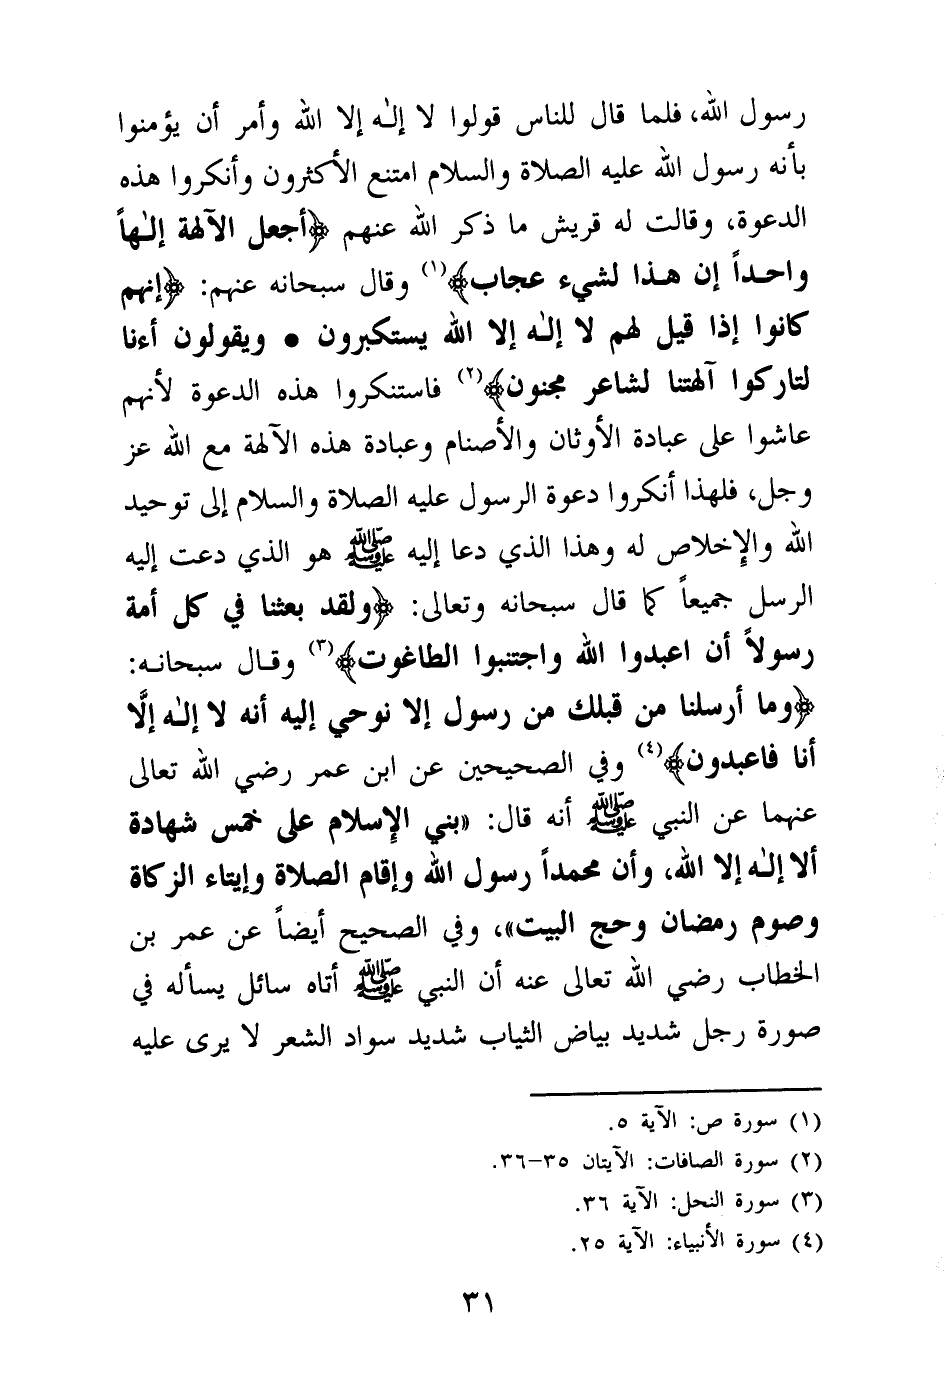 رسول الله، فلما قال للناس قولوا لا إلٰه إلا الله وأمر أن يؤمنوا
بأنه رسول الله عليه الصلاة والسلام امتنع الأكثرون وأنكروا هذه
الدعوة، وقالت له قريش ما ذكر الله عنهم ﴿أجعل الآلهة إلـٰهاً
واحـداً إن هـذا لشيء عجاب﴾(١) وقال سبحانه عنهم: ﴿إنهم
كانوا إذا قيل لهم لا إلٰه إلا الله يستكبرون • ويقولون أءنا
لتاركوا آلهتنا لشاعر مجنون﴾(٢) فاستنكروا هذه الدعوة لأنهم
عاشوا على عبادة الأوثان والأصنام وعبادة هذه الآلهة مع الله عز
وجل، فلهذا أنكروا دعوة الرسول عليه الصلاة والسلام إلى توحيد
الله والإخلاص له وهذا الذي دعا إليه ﷺ هو الذي دعت إليه
الرسل جميعاً كما قال سبحانه وتعالى: ﴿ولقد بعثنا في كل أمة
رسولاً أن اعبدوا الله واجتنبوا الطاغوت﴾(٣) وقـال سبحانـه:
﴿وما أرسلنا من قبلك من رسول إلا نوحي إليه أنه لا إلٰه إلَّا
أنا فاعبدون﴾(٤) وفي الصحيحين عن ابن عمر رضي الله تعالى
عنهما عن النبي ﷺ أنه قال: «بني الإسلام على خمس شهادة
ألا إلٰه إلا الله، وأن محمداً رسول الله وإقام الصلاة وإيتاء الزكاة
وصوم رمضان وحج البيت»، وفي الصحيح أيضاً عن عمر بن
الخطاب رضي الله تعالى عنه أن النبي ﷺ أتاه سائل يسأله في
صورة رجل شديد بياض الثياب شديد سواد الشعر لا يرى عليه
(١) سورة ص: الآية ٥.
(٢) سورة الصافات: الآيتان ٣٥–٣٦.
(٣) سورة النحل: الآية ٣٦.
(٤) سورة الأنبياء: الآية ٢٥.
٣١